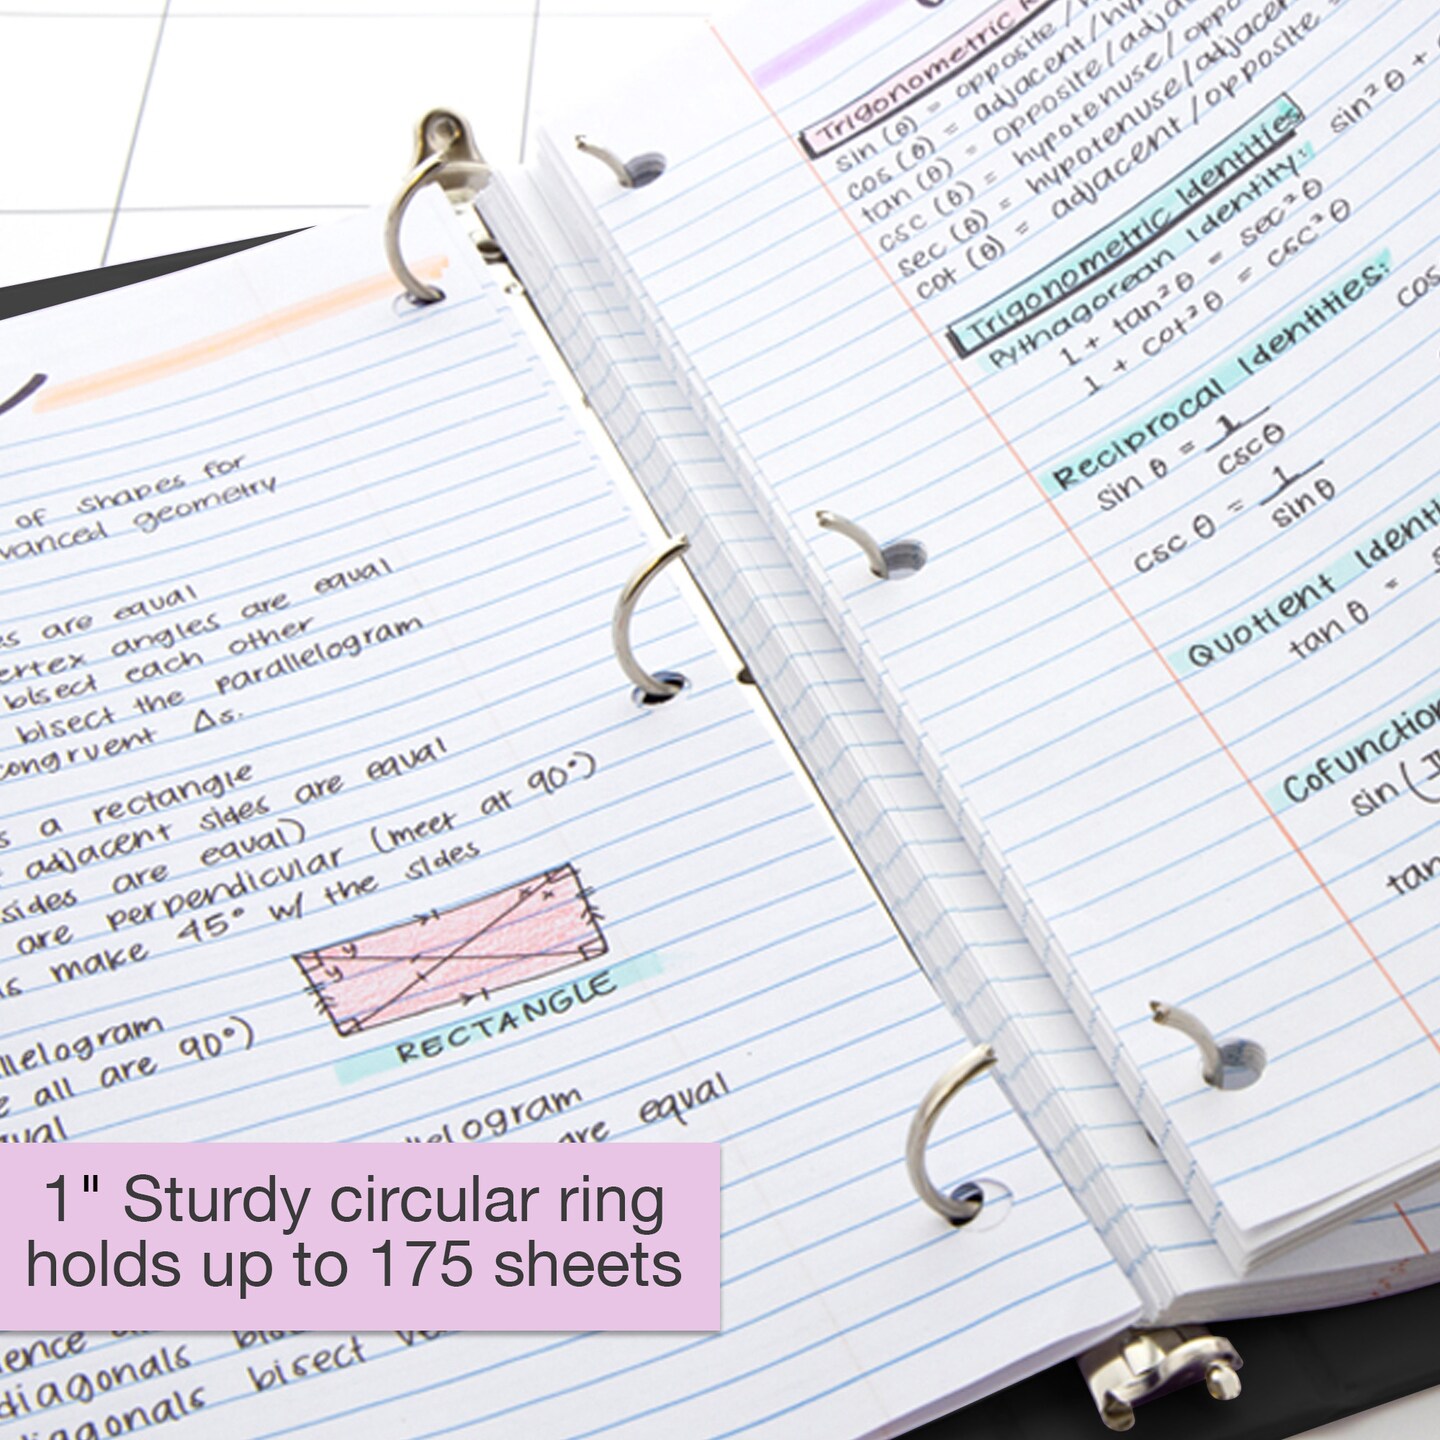 of shapes for
vanced geometry
es are equal
ertex angles are equal
bisect each other
bisect the parallelogram
congruent Δs.
s a rectangle
adjacent sides are equal
sides are equal)
are perpendicular (meet at 90°)
make 45° w/ the sides
RECTANGLE
llelogram
all are 90°)
lelogram
are equal
1" Sturdy circular ring
holds up to 175 sheets
diagonals
diagonals bisect
Trigonometric
sin (θ) = opposite/
cos (θ) = adjacent/
tan (θ) = opposite/adja
csc (θ) = hypotenuse/oppo
sec (θ) = hypotenuse/adjacen
cot (θ) = adjacent/opposite
Trigonometric Identities
Pythagorean Identity: sin²θ +
1 + tan²θ = sec²θ
1 + cot²θ = csc²θ
Reciprocal Identities:
sin θ = 1
cscθ
cos
csc θ = 1
sinθ
Quotient Identi
tan θ =
Cofunction
sin (
tan